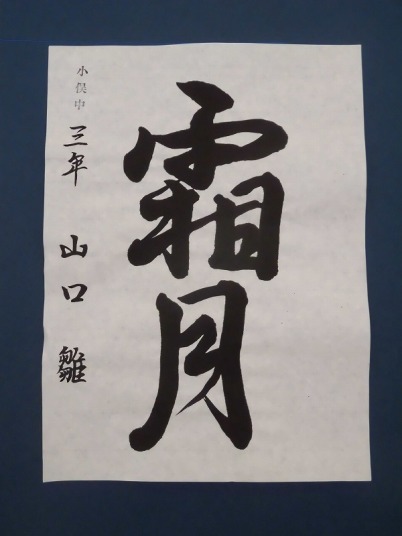 霜月
小俣中
三年 山口 雛